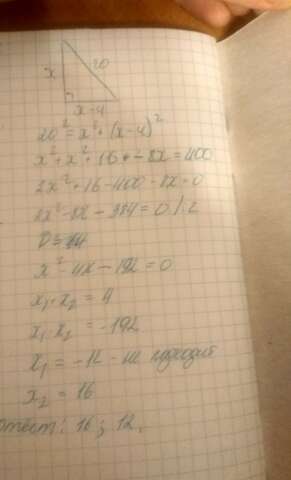 x 20
x-4
20² = x² + (x-4)²
x² + x² + 16 + -8x = 400
2x² + 16 - 400 - 8x = 0
2x² - 8x - 384 = 0 /:2
x² - 4x - 192 = 0
x₁ + x₂ = 4
x₁ x₂ = -192
x₁ = -12 - не подходит
x₂ = 16
Ответ: 16; 12.